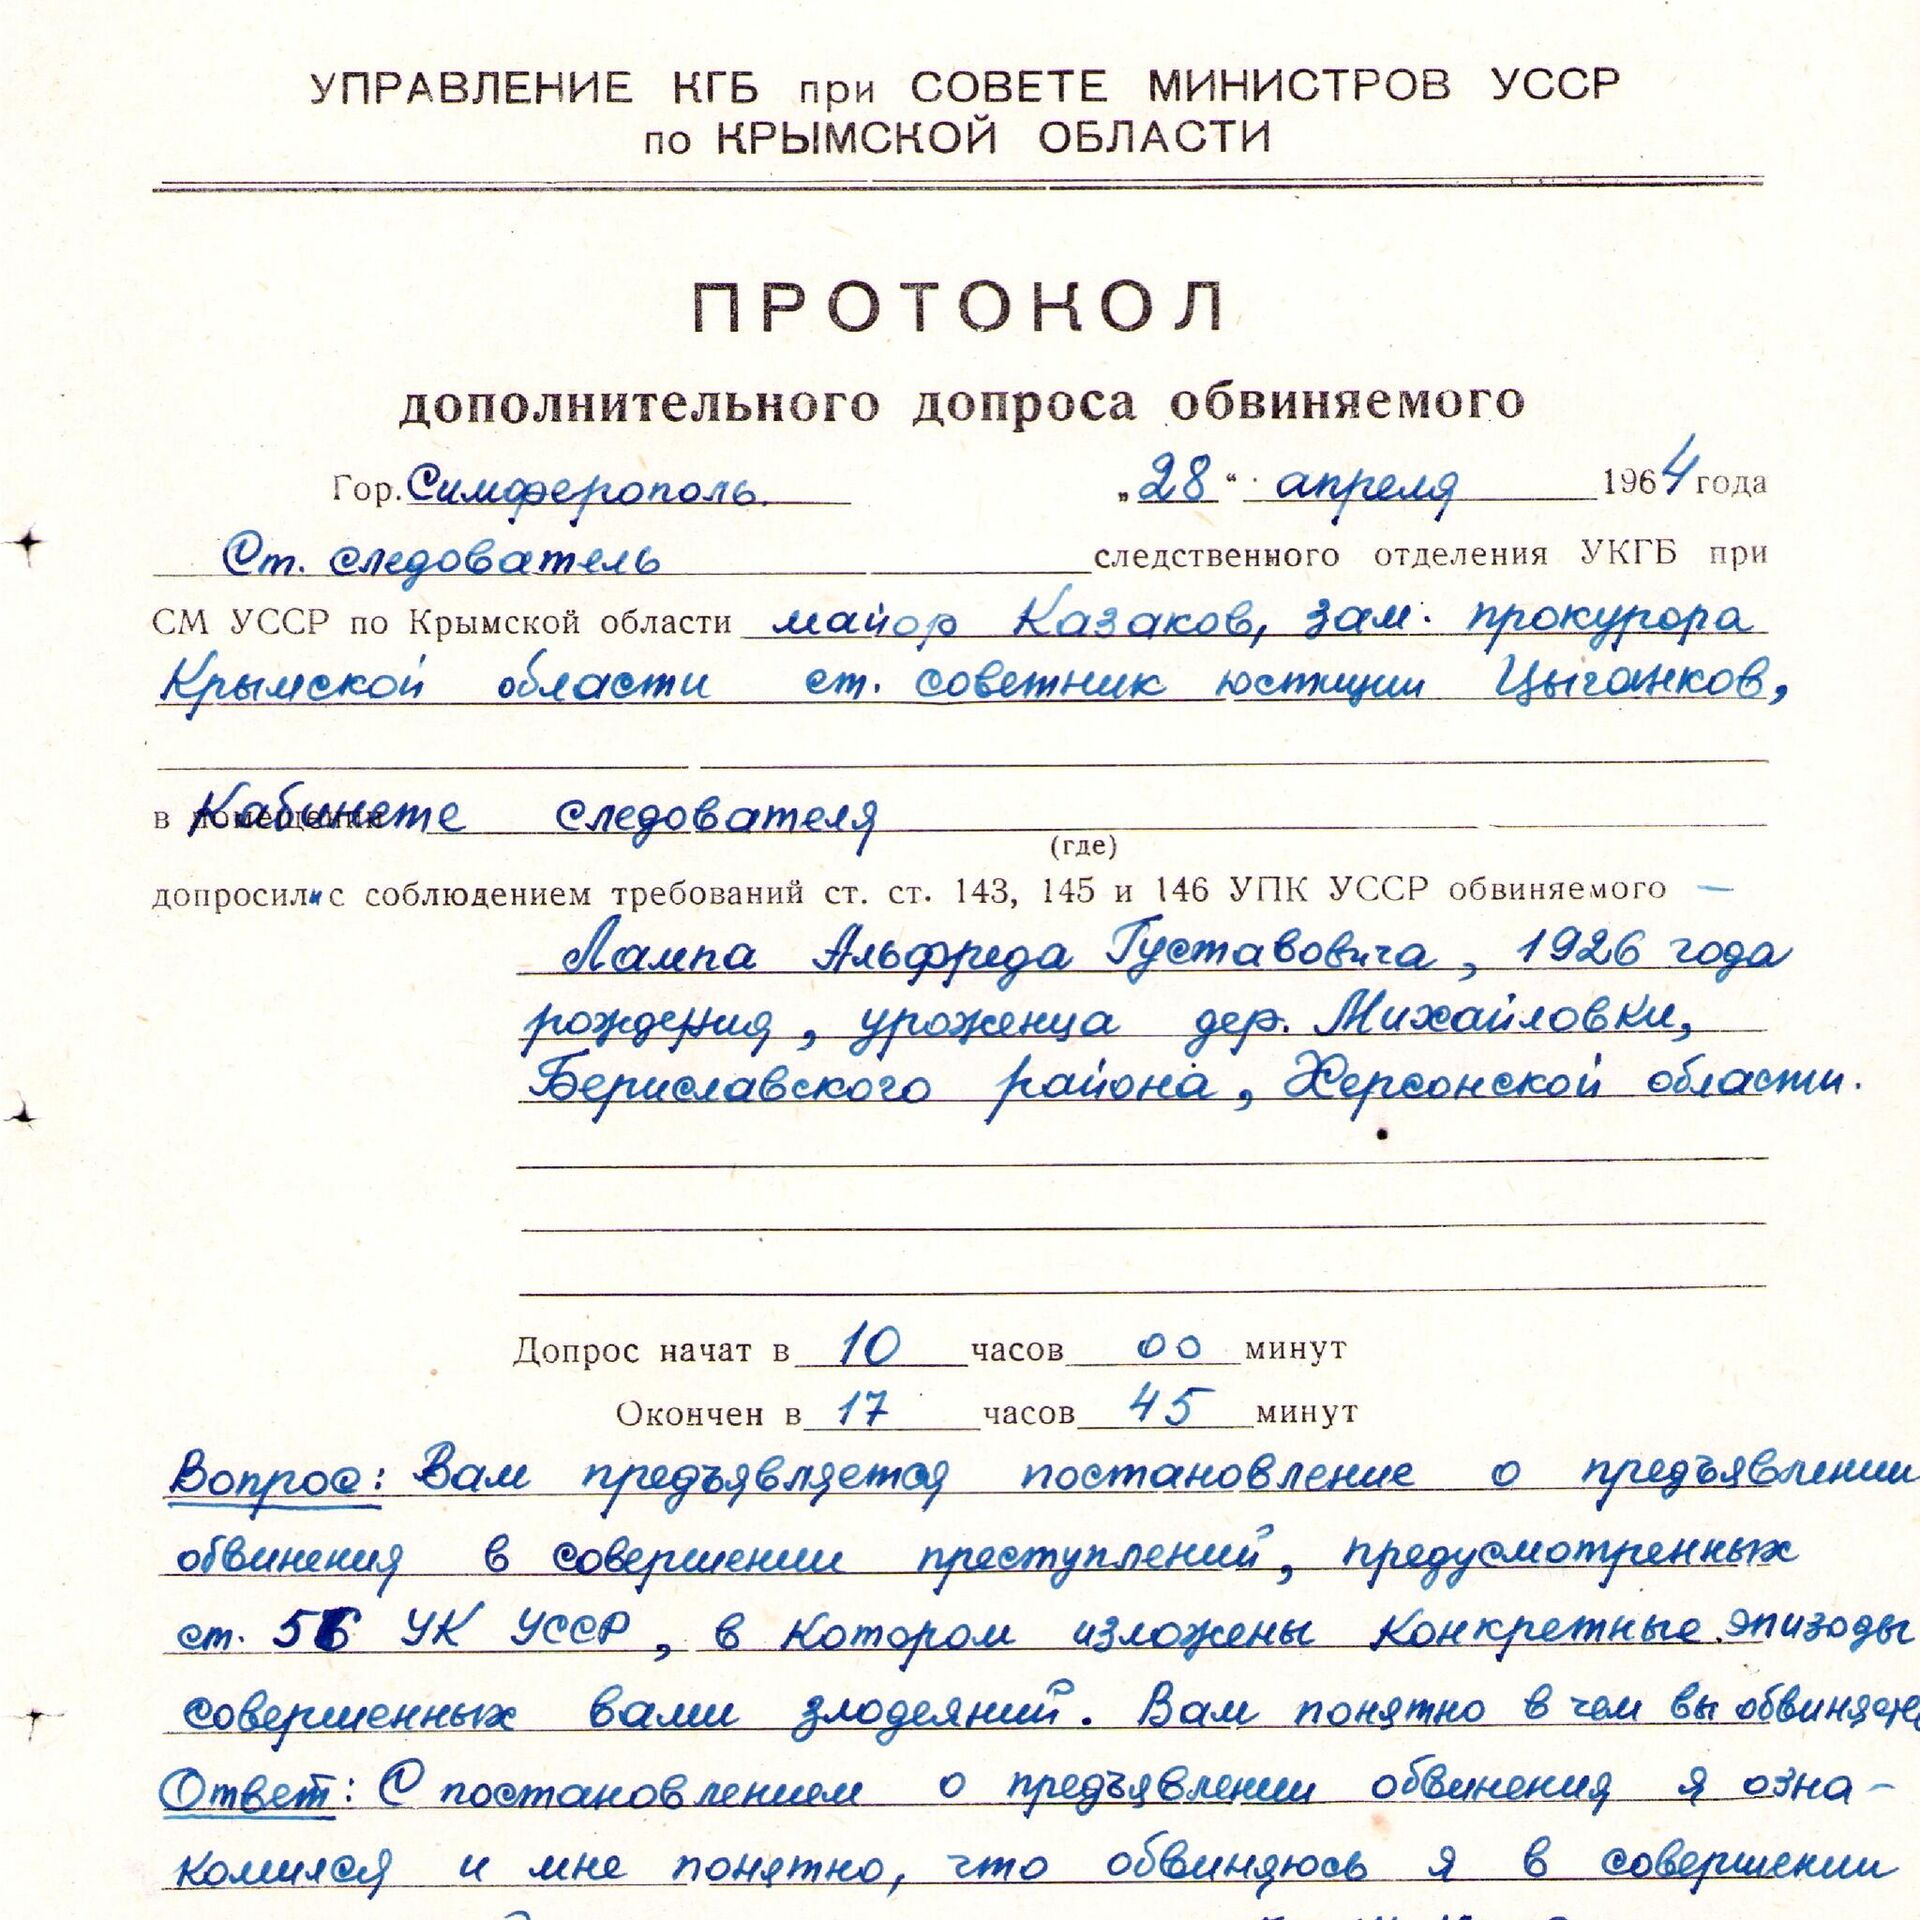 УПРАВЛЕНИЕ КГБ при СОВЕТЕ МИНИСТРОВ УССР
по КРЫМСКОЙ ОБЛАСТИ
ПРОТОКОЛ
дополнительного допроса обвиняемого
Гор. Симферополь. „28“ апреля 1964 года
Ст. следователь следственного отделения УКГБ при
СМ УССР по Крымской области майор Казаков, зам. прокурора
Крымской области ст. советник юстиции Цыганков,
в Кабинете следователя
(где)
допросили с соблюдением требований ст. ст. 143, 145 и 146 УПК УССР обвиняемого —
Лампа Альфреда Густавовича, 1926 года
рождения, уроженца дер. Михайловки,
Бериславского района, Херсонской области.
Допрос начат в 10 часов 00 минут
Окончен в 17 часов 45 минут
Вопрос: Вам предъявляется постановление о предъявлении
обвинения в совершении преступлений, предусмотренных
ст. 56 УК УССР, в котором изложены конкретные эпизоды
совершенных вами злодеяний. Вам понятно в чем вы
Ответ: С постановлением о предъявлении обвинения я озна-
комился и мне понятно, что обвиняюсь я в совершении